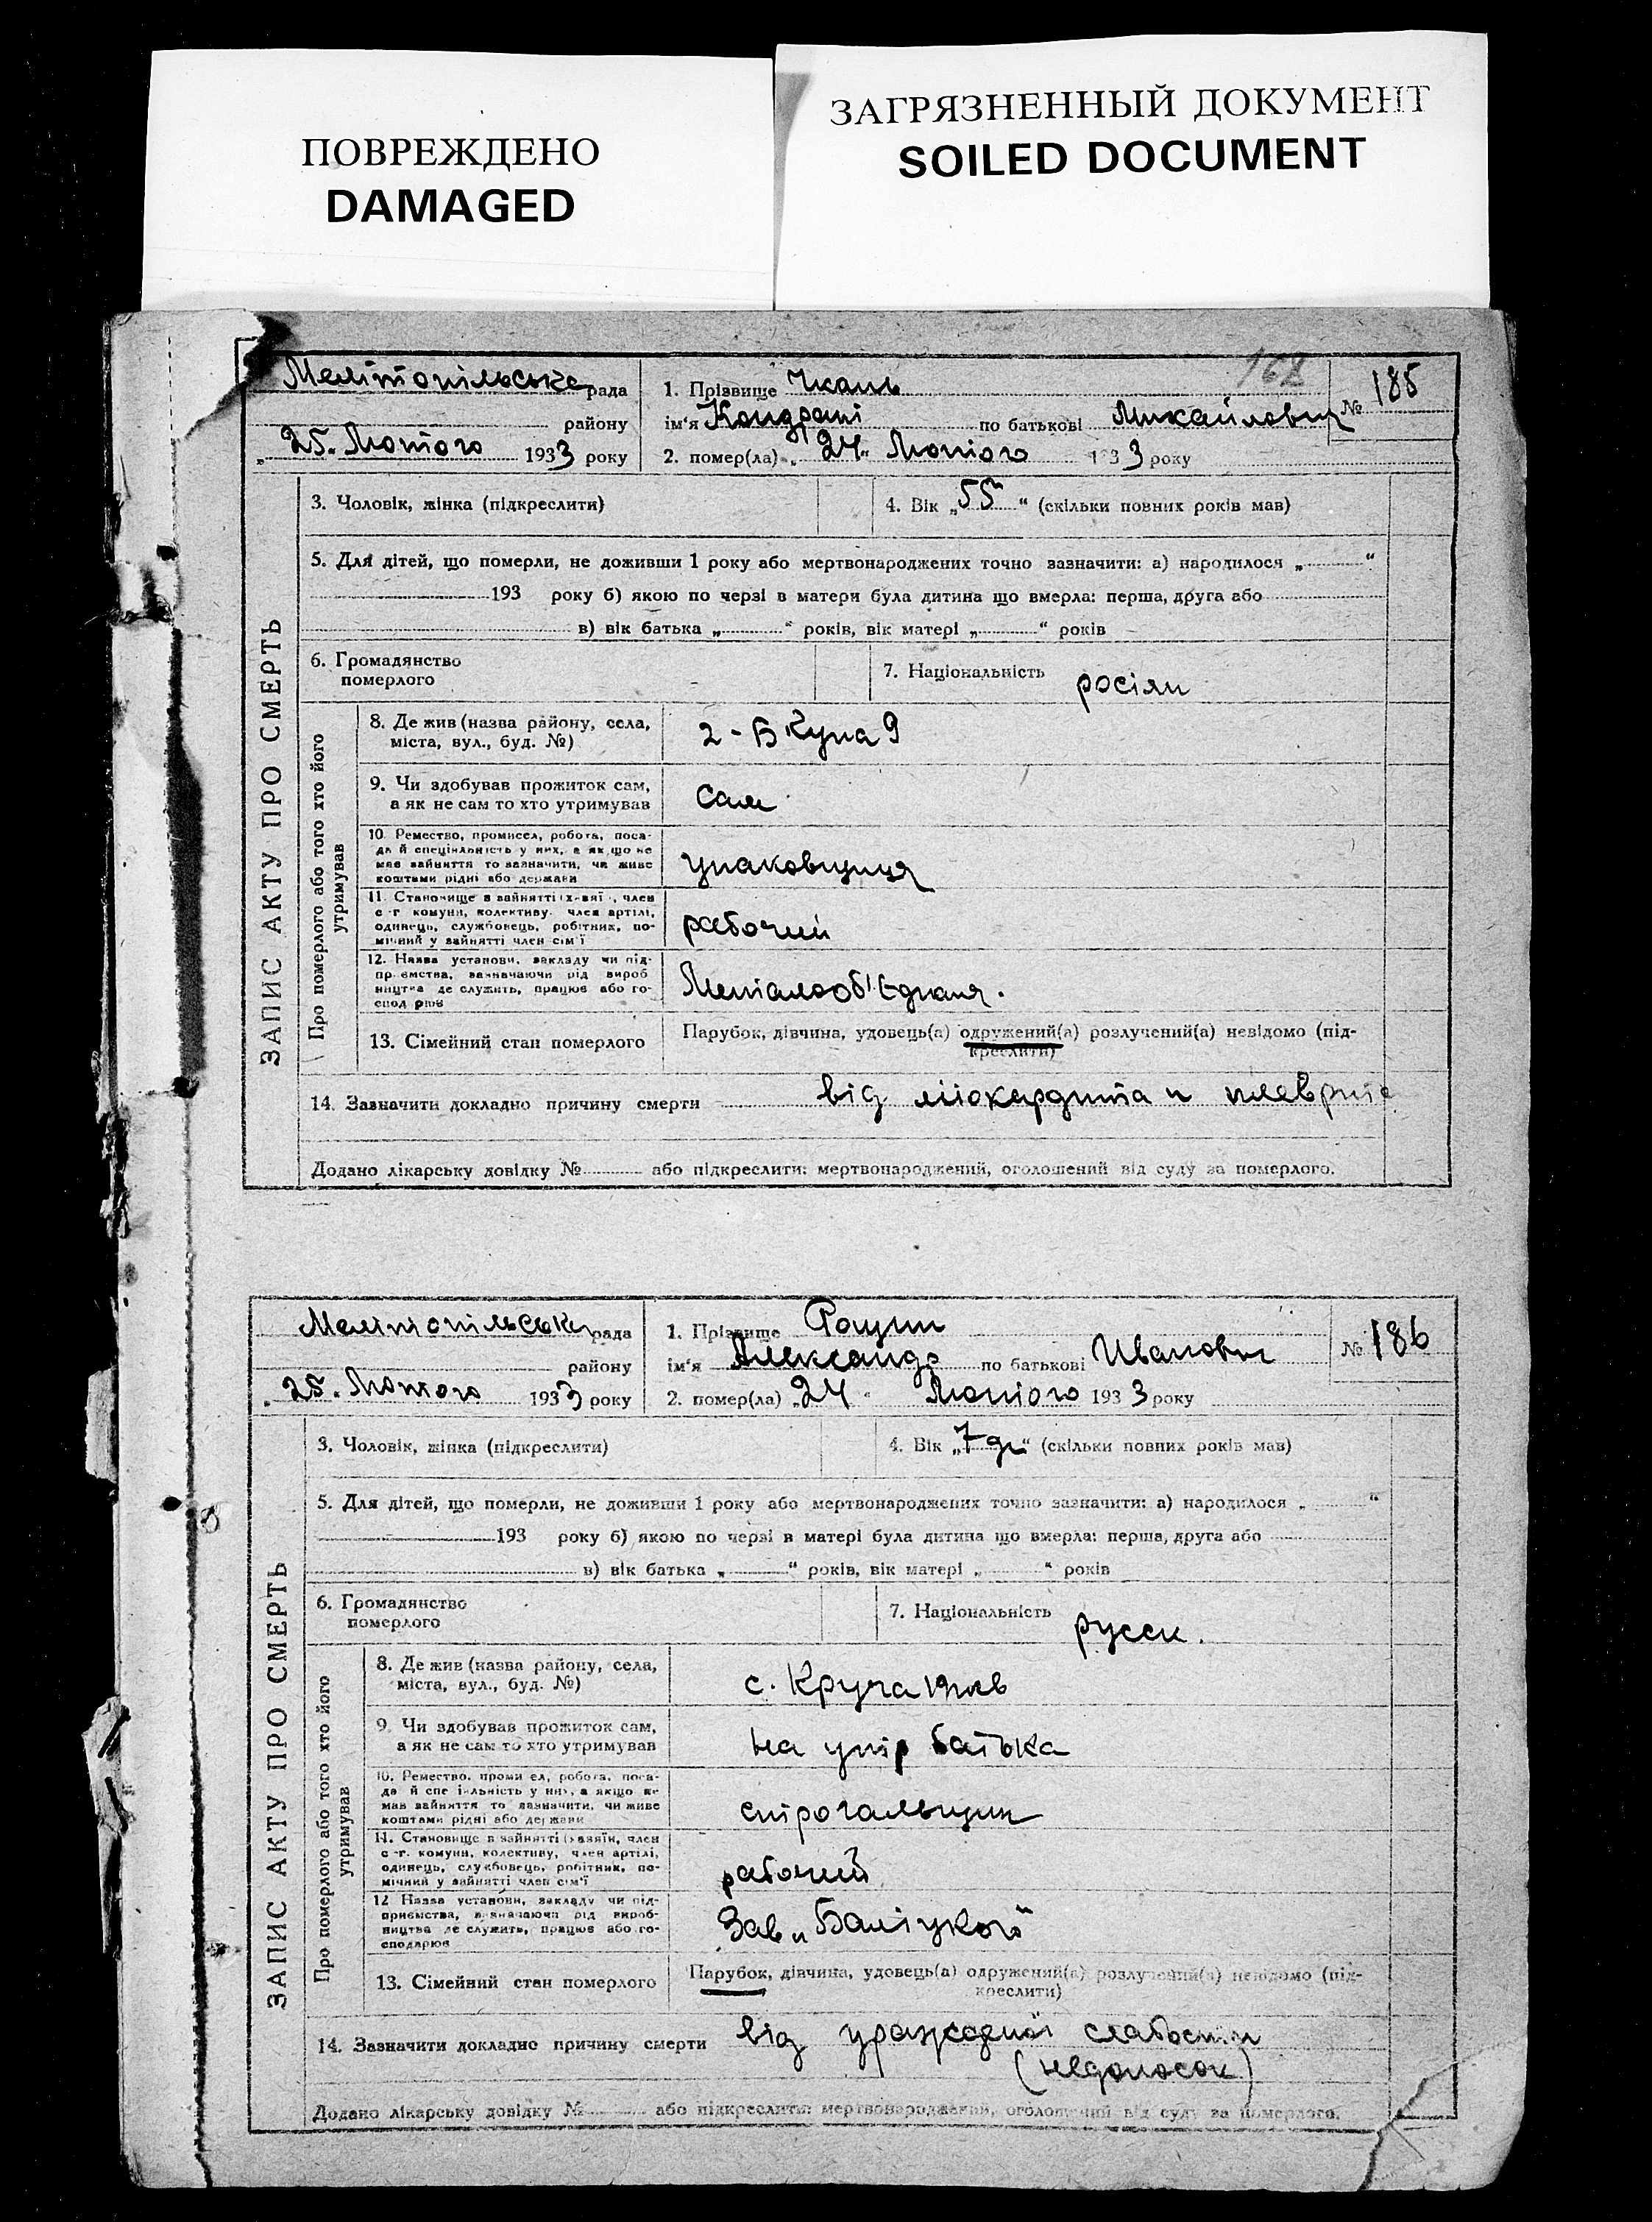 ПОВРЕЖДЕНО
DAMAGED
ЗАГРЯЗНЕННЫЙ ДОКУМЕНТ
SOILED DOCUMENT
162
Мелітопільська рада
району
„ 25. Лютого 1933 року
1. Прізвище Чкань
ім'я по батькові Михайлович
№ 185
2. помер(ла) „ 24 “ Лютого 1933 року
ЗАПИС АКТУ ПРО СМЕРТЬ
3. Чоловік, жінка (підкреслити)
4. Вік „ 55 “ (скільки повних років мав)
5. Для дітей, що померли, не доживши 1 року або мертвонароджених точно зазначити: а) народилося „ “
193 року б) якою по черзі в матери була дитина що вмерла: перша, друга або
в) вік батька „ “ років, вік матері „ “ років
6. Громадянство
померлого
7. Національність росіян
Про померлого або того хто його
утримував
8. Де жив (назва району, села,
міста, вул., буд. №)
9. Чи здобував прожиток сам,
а як не сам то хто утримував
сам
10. Ремество, промисел, робота, поса-
да й спеціяльність у них, а якщо не
мав зайняття то зазначити, чи живе
коштами рідні або держави
упаковщиця
11. Становище в зайнятті (х-вяї , член
с-г комуни, колективу. член артілі,
одинець, службовець, робітник, по-
мічний у зайнятті член сім'ї
рабочий
12. Назва установи, закладу чи під-
пр ємства, зазначаючи рід вироб
ництва де служить, працює або го-
спод рює
13. Сімейний стан померлого
Парубок, дівчина, удовець(а) одружений(а) розлучений(а) невідомо (під-
креслити)
14. Зазначити докладно причину смерти від міокардита и плеврита
Додано лікарську довідку № або підкреслити: мертвонароджений, оголошений від суду за померлого.
Мелітопільська рада
району
„ 25. Лютого 1933 року
1. Прізвище Рощин
ім'я Александр по батькові Иванович
№ 186
2. помер(ла) „ 24 “ Лютого 1933 року
ЗАПИС АКТУ ПРО СМЕРТЬ
3. Чоловік, жінка (підкреслити)
4. Вік „ 7 дн “ (скільки повних років мав)
5. Для дітей, що померли, не доживши 1 року або мертвонароджених точно зазначити: а) народилося „ “
193 року б) якою по черзі в матері була дитина що вмерла: перша, друга або
в) вік батька „ “ років, вік матері „ “ років
6. Громадянство
померлого
7. Національність русск.
Про померлого або того хто його
утримував
8. Де жив (назва району, села,
міста, вул., буд. №)
9. Чи здобував прожиток сам,
а як не сам то хто утримував
на утр батька
10. Ремество, проми ел, робота, поса-
да й спе іяльність у них, а якщо не
мав зайняття то зазначити, чи живе
коштами рідні або держави
строгальщик
11. Становище в зайнятті (хазяїн, член
с-г. комуни, колективу, член артілі,
одинець, службовець, робітник, по-
мічний у зайнятті член сім'ї
рабочий
12 Назва установи, закладу чи під-
приємства, зазначаючи рід вироб-
ництва де служить, працює або го-
сподарює
Зав „Баліцкого“
13. Сімейний стан померлого
Парубок, дівчина, удовець(а) одружений(а) розлучений(а) невідомо (під-
креслити)
14. Зазначити докладно причину смерти від урожденної слабости
(недоносок)
Додано лікарську довідку № або підкреслити: мертвонароджений, оголошений від суду за померлого.